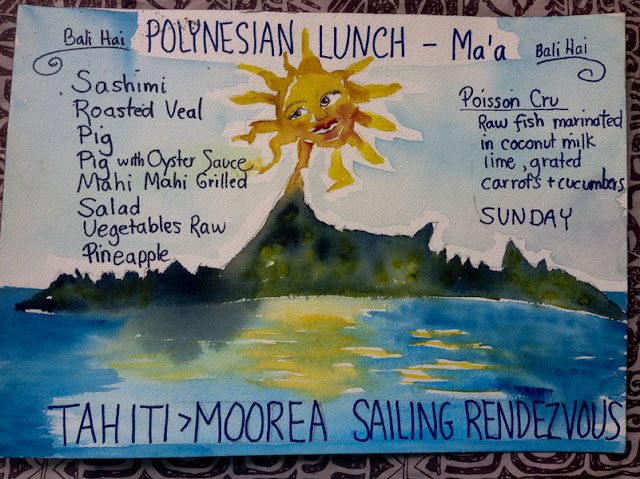 Bali Hai POLYNESIAN LUNCH - Ma'a Bali Hai
Sashimi
Roasted Veal
Pig
Pig with Oyster Sauce
Mahi Mahi Grilled
Salad
Vegetables Raw
Pineapple
Poisson Cru
Raw fish marinated
in coconut milk
lime, grated
carrots + cucumbers
SUNDAY
TAHITI > MOOREA SAILING RENDEZVOUS